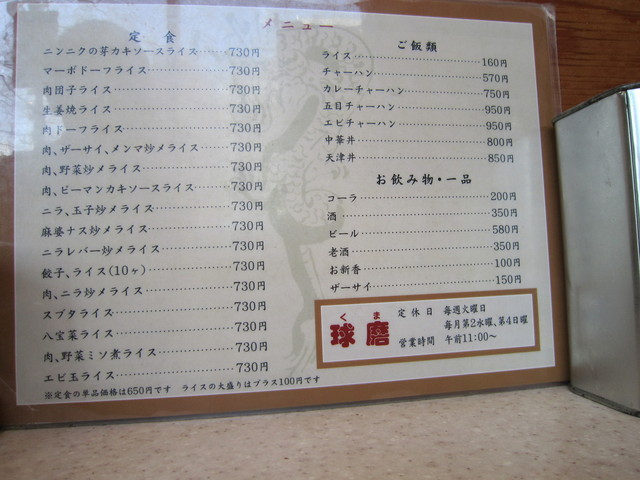 メニュー
定食
ニンニクの芽カキソースライス 730円
マーボドーフライス 730円
肉団子ライス 730円
生姜焼ライス 730円
肉ドーフライス 730円
肉、ザーサイ、メンマ炒メライス 730円
肉、野菜炒メライス 730円
肉、ピーマンカキソースライス 730円
ニラ、玉子炒メライス 730円
麻婆ナス炒メライス 730円
ニラレバー炒メライス 730円
餃子、ライス(10ヶ) 730円
肉、ニラ炒メライス 730円
スブタライス 730円
八宝菜ライス 730円
肉、野菜ミソ煮ライス 730円
エビ玉ライス 730円
※定食の単品価格は650円です ライスの大盛りはプラス100円です
ご飯類
ライス 160円
チャーハン 570円
カレーチャーハン 750円
五目チャーハン 950円
エビチャーハン 950円
中華丼 800円
天津丼 850円
お飲み物・一品
コーラ 200円
酒 350円
ビール 580円
老酒 350円
お新香 100円
ザーサイ 150円
くま
球磨
定休日 毎週火曜日
毎月第2水曜、第4日曜
営業時間 午前11:00〜